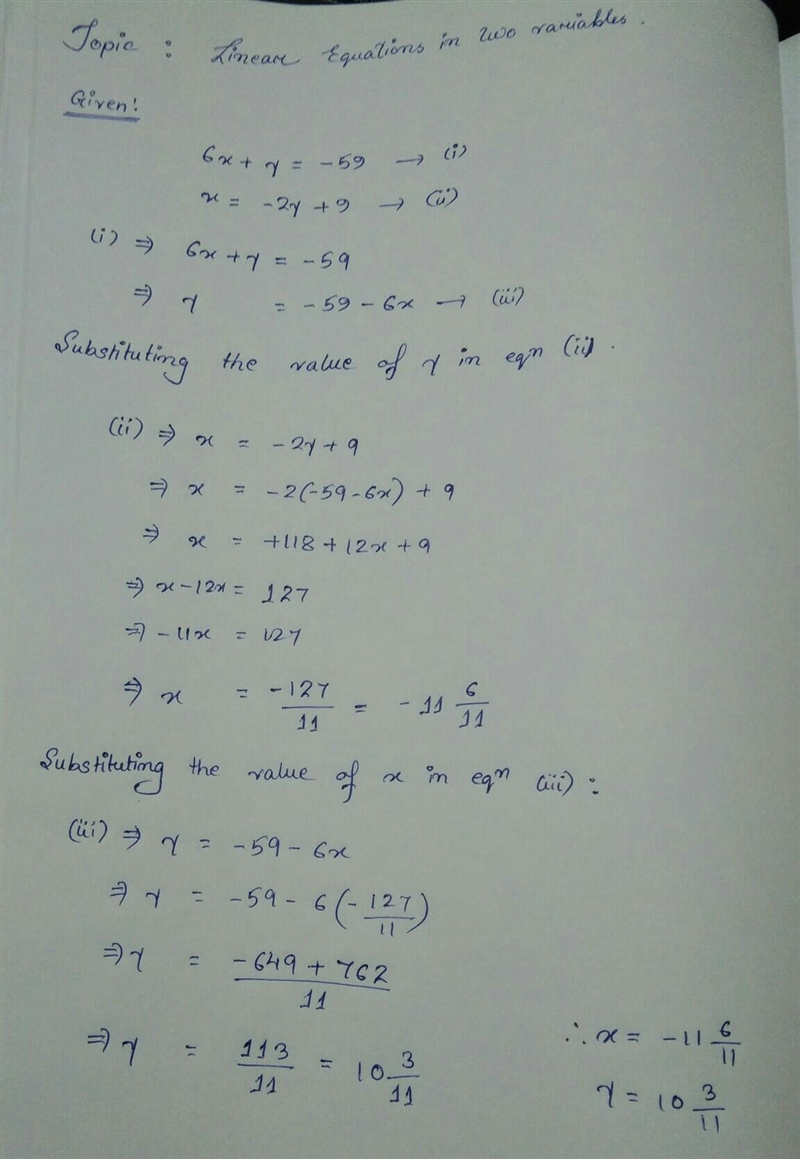 Topic : Linear Equations in two variables.
Given!
6x + y = -59 → (i)
x = -2y + 9 → (ii)
(i) ⇒ 6x + y = -59
⇒ y = -59 - 6x → (iii)
Substituting the value of y in eqn (ii).
(ii) ⇒ x = -2y + 9
⇒ x = -2(-59 - 6x) + 9
⇒ x = +118 + 12x + 9
⇒ x - 12x = 127
⇒ -11x = 127
⇒ x = -127/11 = -11 6/11
Substituting the value of x in eqn (iii) :
(iii) ⇒ y = -59 - 6x
⇒ y = -59 - 6(-127/11)
⇒ y = (-649 + 762)/11
⇒ y = 113/11 = 10 3/11
∴ x = -11 6/11
y = 10 3/11